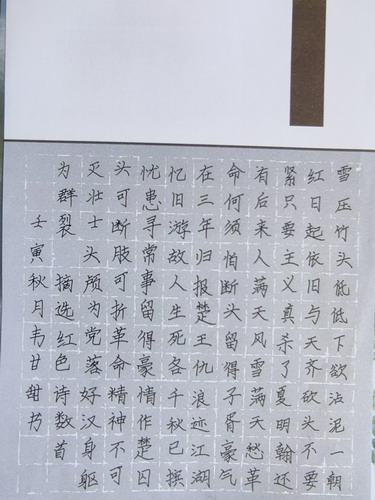 雪压竹头低低下欲沾泥一朝
红日起依旧与天齐砍头不要
紧只要主义真杀了夏明翰还
有后来人满天风雪满天愁革
命何须怕断头留得子胥豪气
在三年归报楚王仇浪迹江湖
忆旧游故人生死各千秋已摈
忧患寻常事留得豪情作楚囚
头可断肢可折革命精神不可
灭壮士头颅为党落好汉身躯
为群裂 摘选红色诗数首
壬寅秋月韦甘甜书